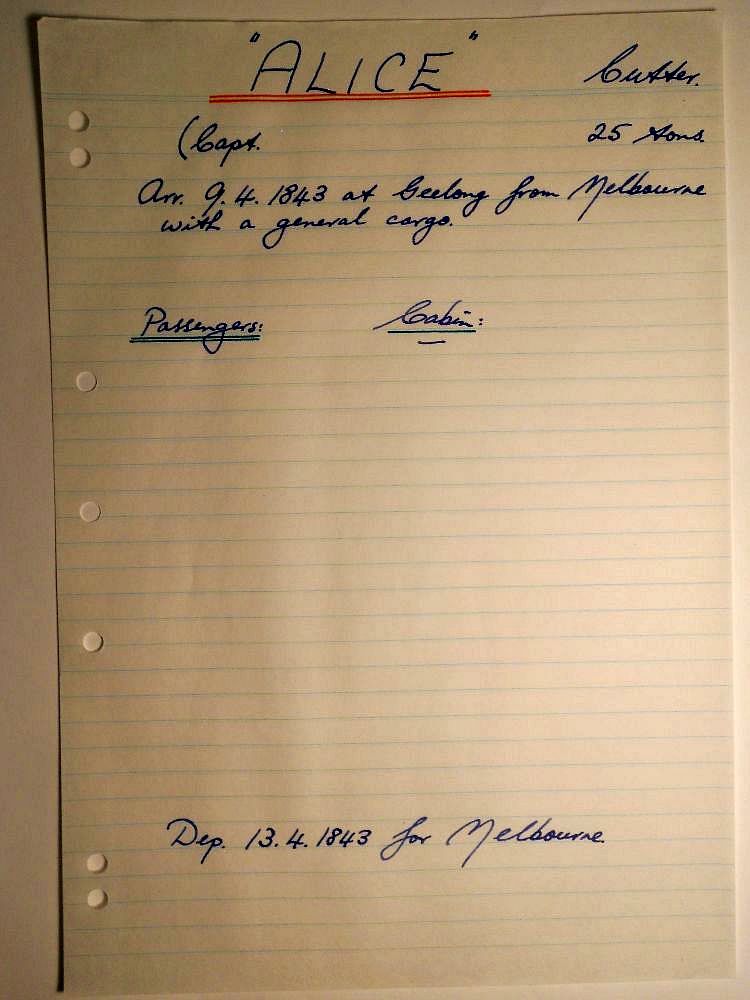 "ALICE" Cutter.
(Capt. 25 tons.
Arr. 9.4.1843 at Geelong from Melbourne
with a general cargo.
Passengers: Cabin:
Dep. 13.4.1843 for Melbourne.